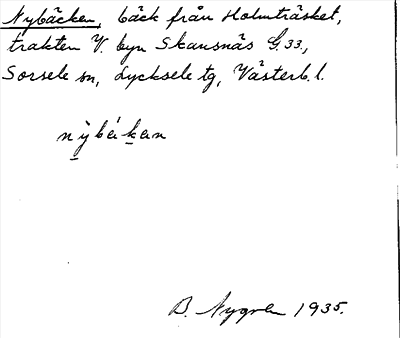 Nybäcken, bäck från Holmträsket,
trakten V. byn Skansnäs G.33.,
Sorsele sn, Lycksele tg, Västerb.l.
B. Nygren 1935.